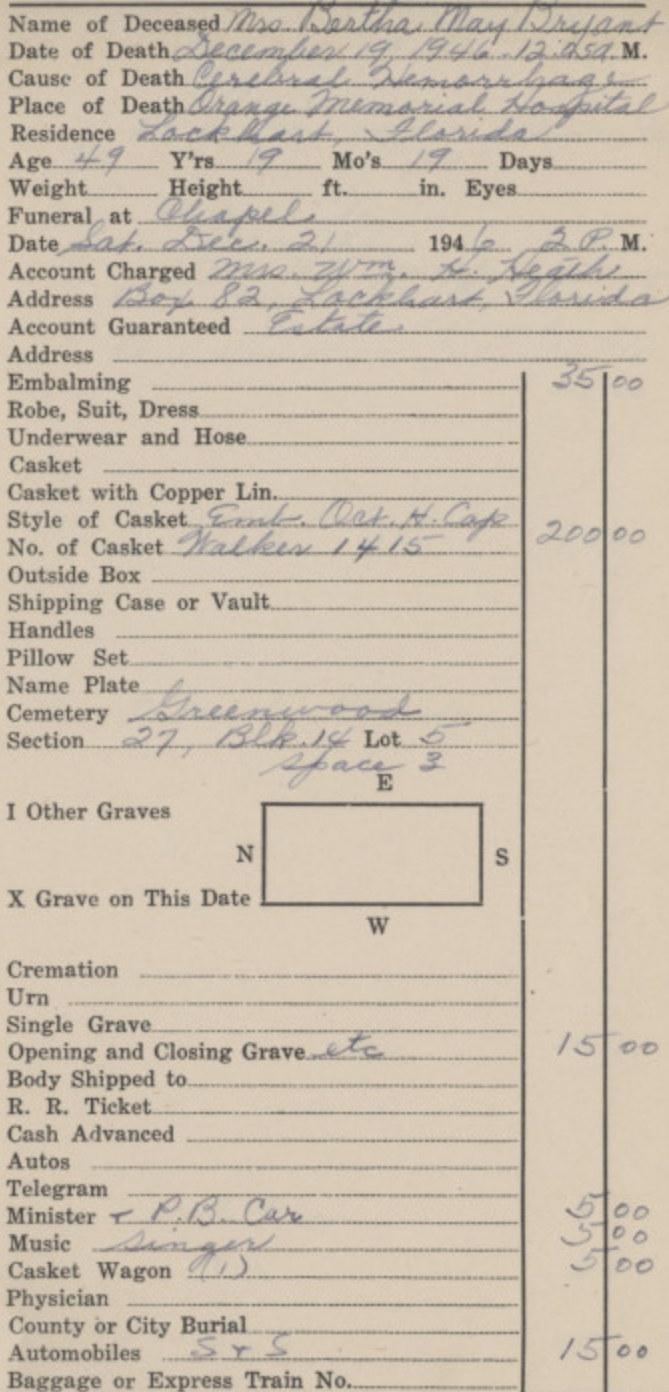 Name of Deceased Mrs. Bertha May Bryant
Date of Death December 19, 1946 12:25a M.
Cause of Death Cerebral Hemorrhage
Place of Death Orange Memorial Hospital
Residence Lockhart, Florida
Age 49 Y'rs 9 Mo's 19 Days
Weight Height ft. in. Eyes
Funeral at Chapel
Date Sat. Dec. 21 1946 2 P. M.
Account Charged Mrs. Wm. H. Heath
Address Box 82, Lockhart, Florida
Account Guaranteed Estate
Address
Embalming 35 00
Robe, Suit, Dress
Underwear and Hose
Casket
Casket with Copper Lin.
Style of Casket Emb. Oct. H. Cap
No. of Casket Walker 1415 200 00
Outside Box
Shipping Case or Vault
Handles
Pillow Set
Name Plate
Cemetery Greenwood
Section 27, Blk. 14 Lot 5
space 3
E
I Other Graves
N S
X Grave on This Date
W
Cremation
Urn
Single Grave
Opening and Closing Grave etc 15 00
Body Shipped to
R. R. Ticket
Cash Advanced
Autos
Telegram
Minister + P.B. Car 5 00
Music Singer 5 00
Casket Wagon (1) 5 00
Physician
County or City Burial
Automobiles S + S 15 00
Baggage or Express Train No.